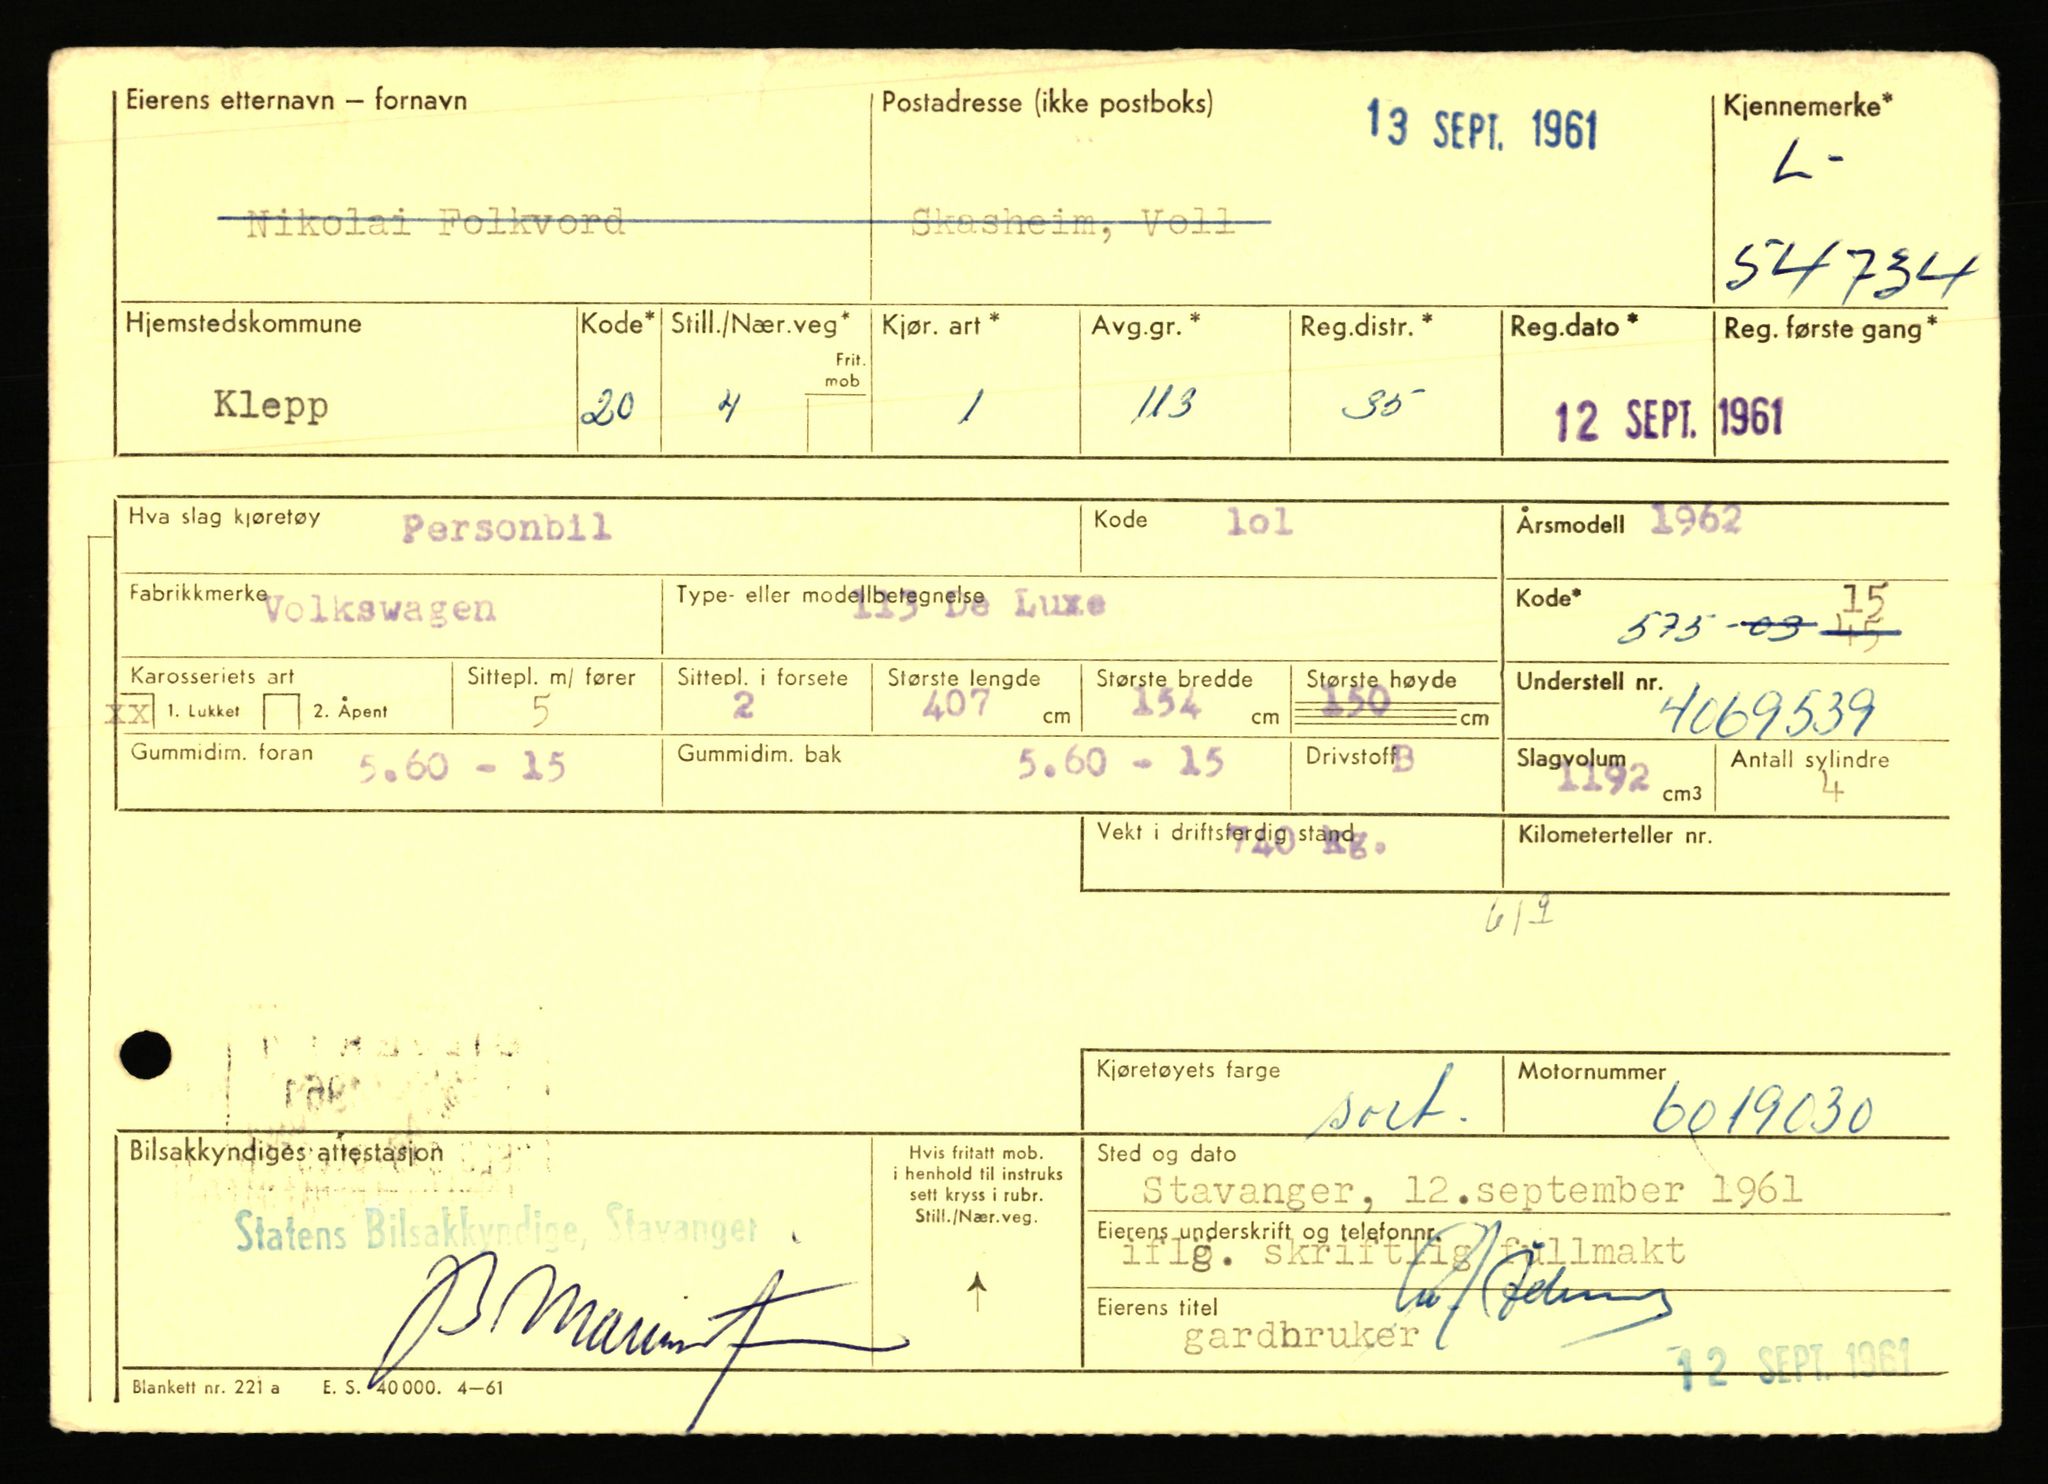 Eierens etternavn – fornavn
Postadresse (ikke postboks)
13 SEPT. 1961
Kjennemerke*
L-
54734
Nikolai Folkvord
Skasheim, Voll
Hjemstedskommune
Kode*
Still./Nær.veg*
Frit. mob
Kjør. art *
Avg.gr. *
Reg.distr. *
Reg.dato *
Reg. første gang *
Klepp
20
4
1
113
35
12 SEPT. 1961
Hva slag kjøretøy
Personbil
Kode
lol
Årsmodell
1962
Fabrikkmerke
Volkswagen
Type- eller modellbetegnelse
113 De Luxe
Kode*
15
575 - 03 45
Karosseriets art
xx 1. Lukket
2. Åpent
Sittepl. m/ fører
5
Sittepl. i forsete
2
Største lengde
407 cm
Største bredde
154 cm
Største høyde
150 cm
Understell nr.
4069539
Gummidim. foran
5.60 - 15
Gummidim. bak
5.60 - 15
Drivstoff
B
Slagvolum
1192 cm3
Antall sylindre
4
Vekt i driftsferdig stand
740 kg.
Kilometerteller nr.
6/9
Kjøretøyets farge
sort.
Motornummer
6019030
Bilsakkyndiges attestasjon
Statens Bilsakkyndige, Stavanger
Hvis fritatt mob.
i henhold til instruks
sett kryss i rubr.
Still./Nær.veg.
Sted og dato
Stavanger, 12.september 1961
Eierens underskrift og telefonnr.
iflg. skriftlig fullmakt
Eierens titel
gardbruker
12 SEPT. 1961
Blankett nr. 221 a E. S. 40 000. 4–61